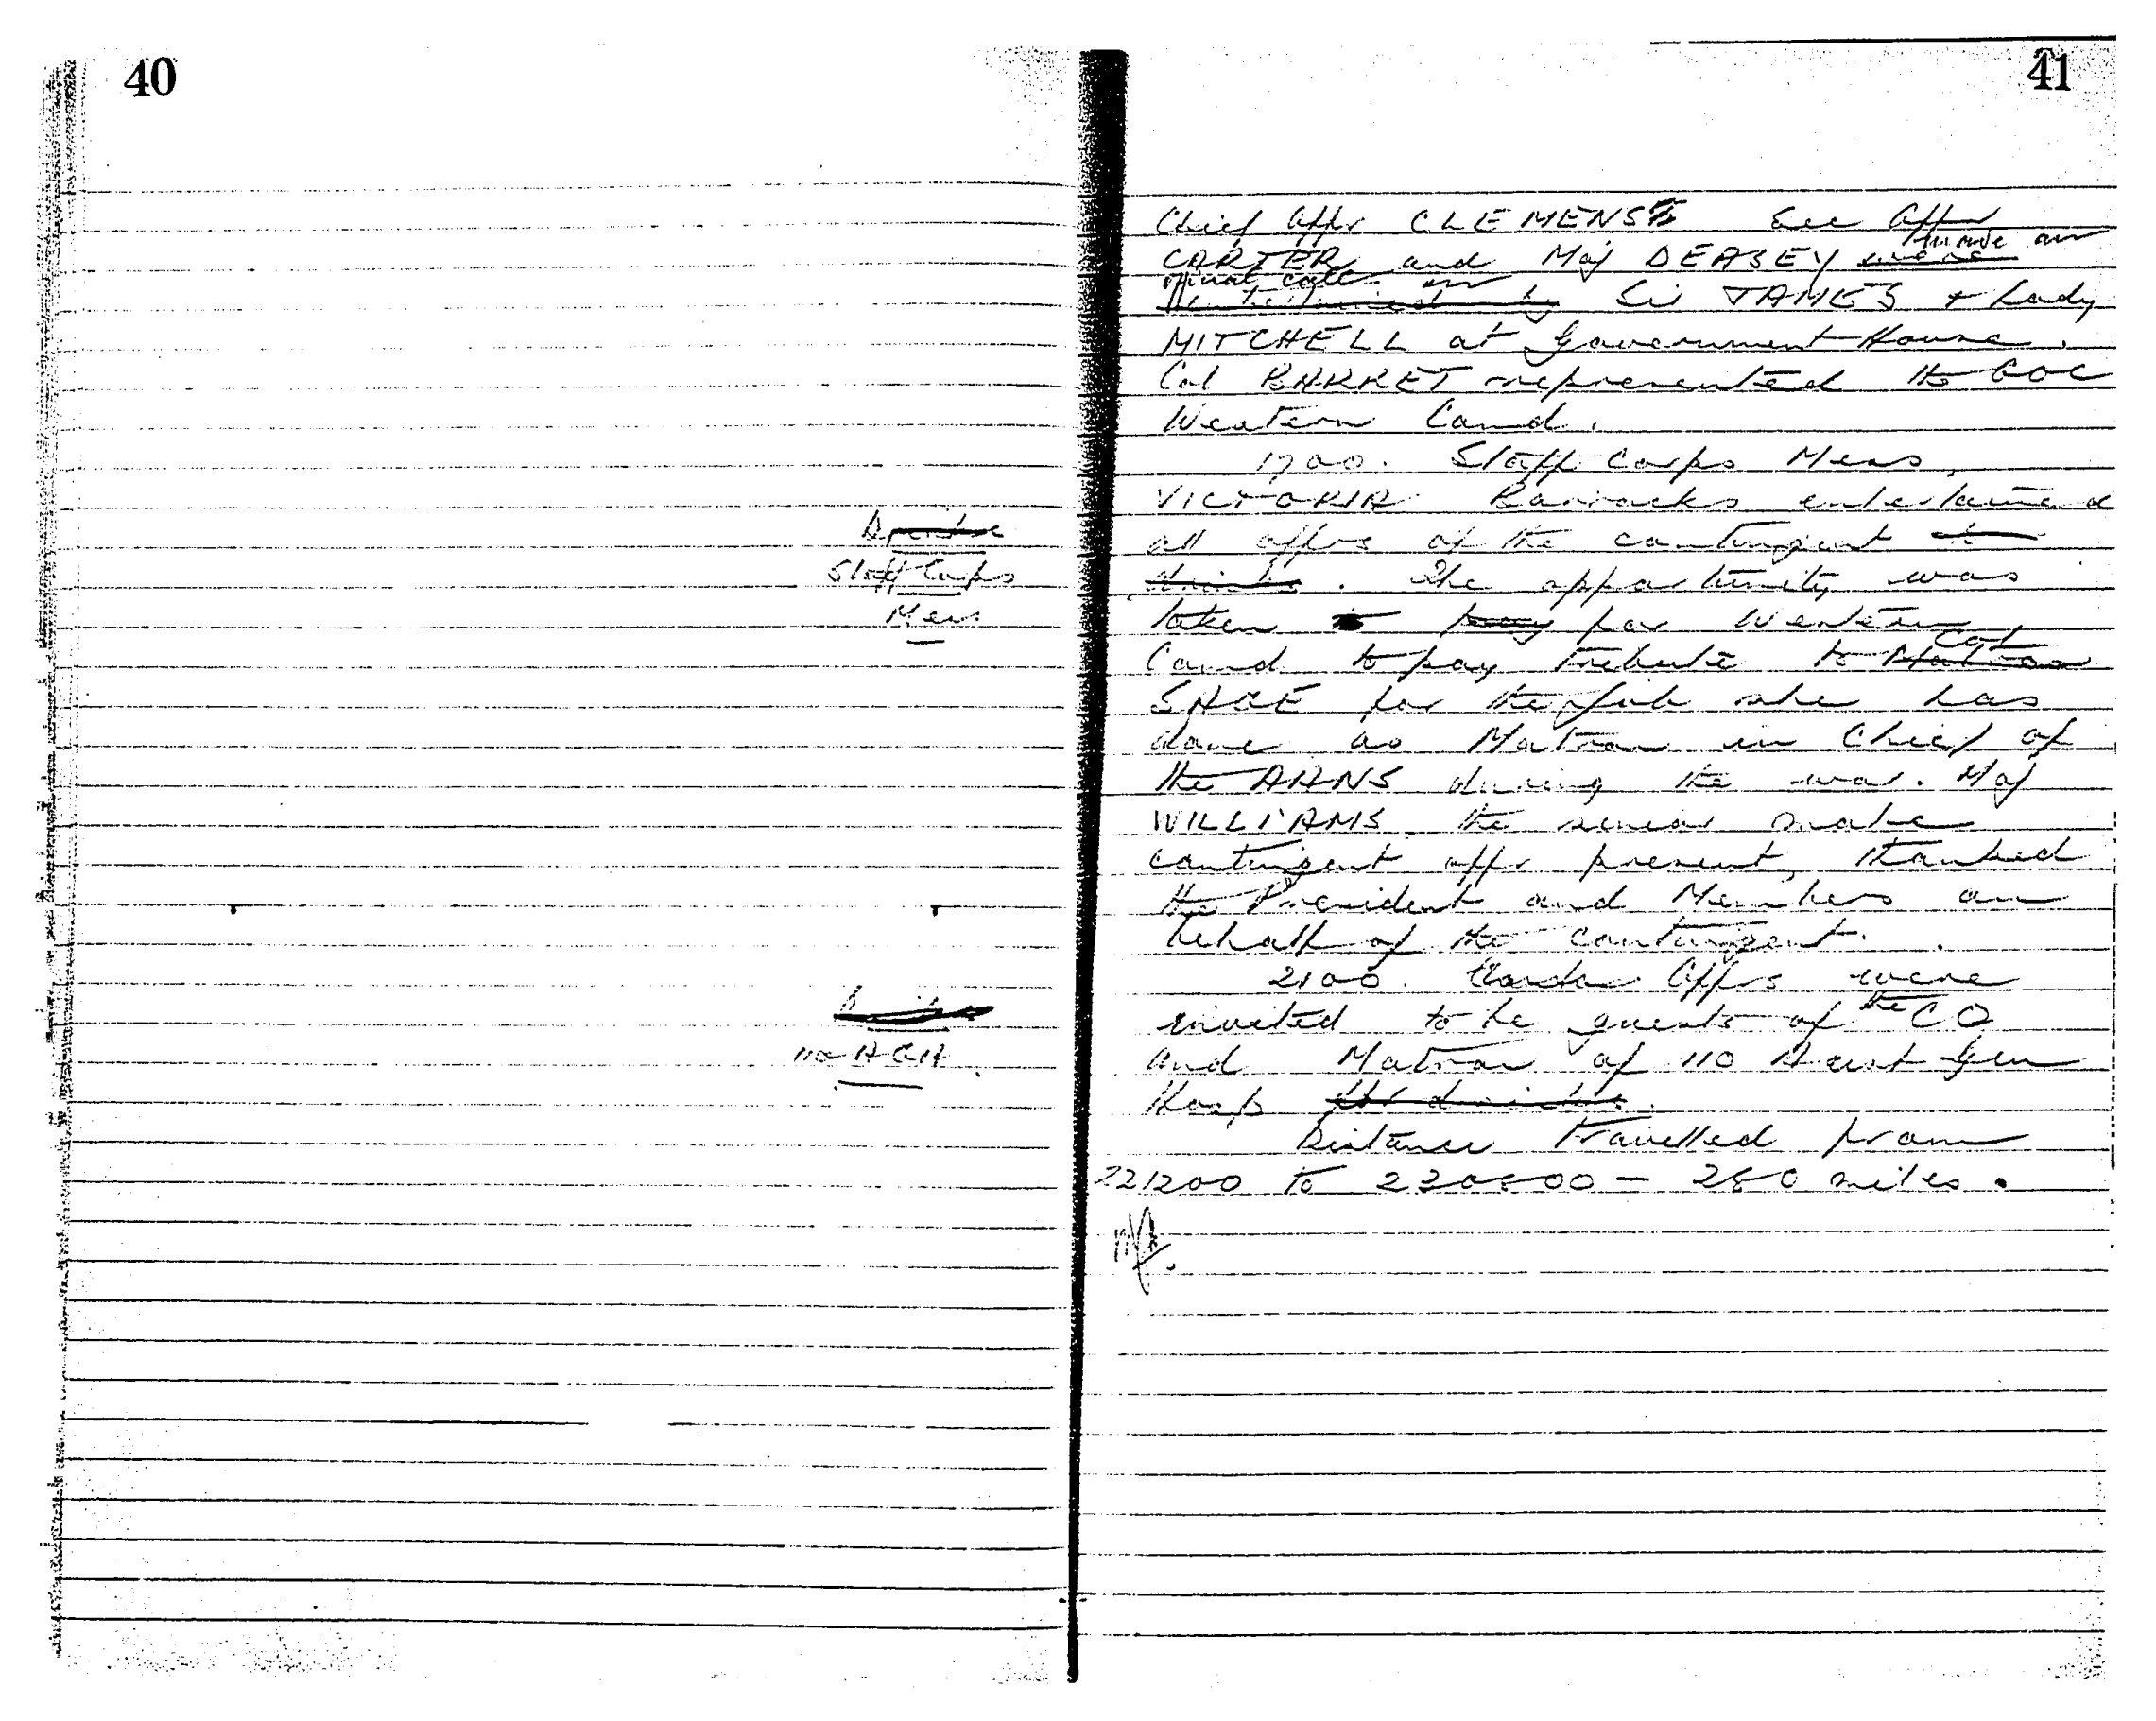 40
Drinks
Staff Corps
Mess
Drinks
110 AGH
41
Chief Offr CLEMENS Sec Offr
made an
CARTER and Maj DEASEY were
official call on
entertained by Sir JAMES + Lady
MITCHELL at Government House.
Col BARRET represented the GOC
Western Comd.
1700. Staff Corps Mess,
VICTORIA Barracks entertained
all offrs of the contingent to
drinks. The opportunity was
taken to pay for Western
Col
Comd to pay tribute to Matron
SAGE for the job she has
done as Matron in Chief of
the AANS during the war. Maj
WILLIAMS the senior male
contingent offr present, thanked
the President and Members on
behalf of the contingent.
2100. Offrs were
invited to be guests of the CO
and Matron of 110 Aust Gen
Hosp for drinks.
Distance travelled from
221200 to 230800 - 280 miles.